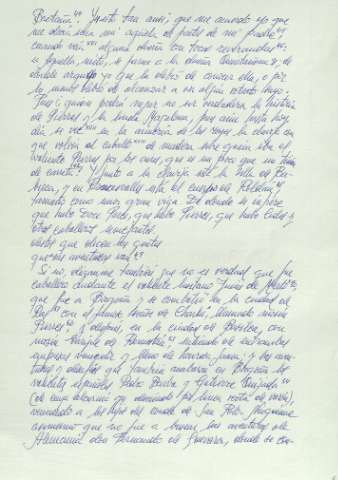 Bretaña? Y esto tan ansí que me acuerdo yo que
me decía una mi agüela de partes de mi padre
cuando veía alguna dueña con tocas reverendas:
«Aquella, nieto, se parece a la dueña Quintañona»; de
donde arguyo yo que la debió de conocer ella, o por
lo menos debió de alcanzar a ver algún retrato suyo.
Pues ¿quién podrá negar no ser verdadera la historia
de Pierres y la linda Magalona, pues aún hasta hoy
día se ve en la armería de los reyes la clavija con
que volvía al caballo de madera sobre quien iba el
valiente Pierres por los aires, que es un poco mayor que un timón
de carreta? Y junto a la clavija está la silla de Ba-
bieca, y en Roncesvalles está el cuerno de Roldán,
tamaño como una gran viga. De donde se infiere
que hubo Doce Pares, que hubo Pierres, que hubo Cides y
otros caballeros semejantes,
destos que dicen las gentes
que a sus aventuras van.
Si no, díganme también que no es verdad que fue
caballero andante el valiente lusitano Juan de Merlo,
que fue a Borgoña y se combatió en la ciudad de
Ras con el famoso señor de Charní, llamado mosén
Pierres, y después, en la ciudad de Basilea, con
mosén Enrique de Remestán, saliendo de entrambas
empresas vencedor y lleno de honrosa fama; y las aven-
turas y desafíos que también acabaron en Borgoña los
valientes españoles Pedro Barba y Gutierre Quijada
(de cuya alcurnia yo desciendo por línea recta de varón),
venciendo a los hijos del conde de San Polo. Niéguenme
asimesmo que no fue a buscar las aventuras a
Alemania don Fernando de Guevara, donde se com-